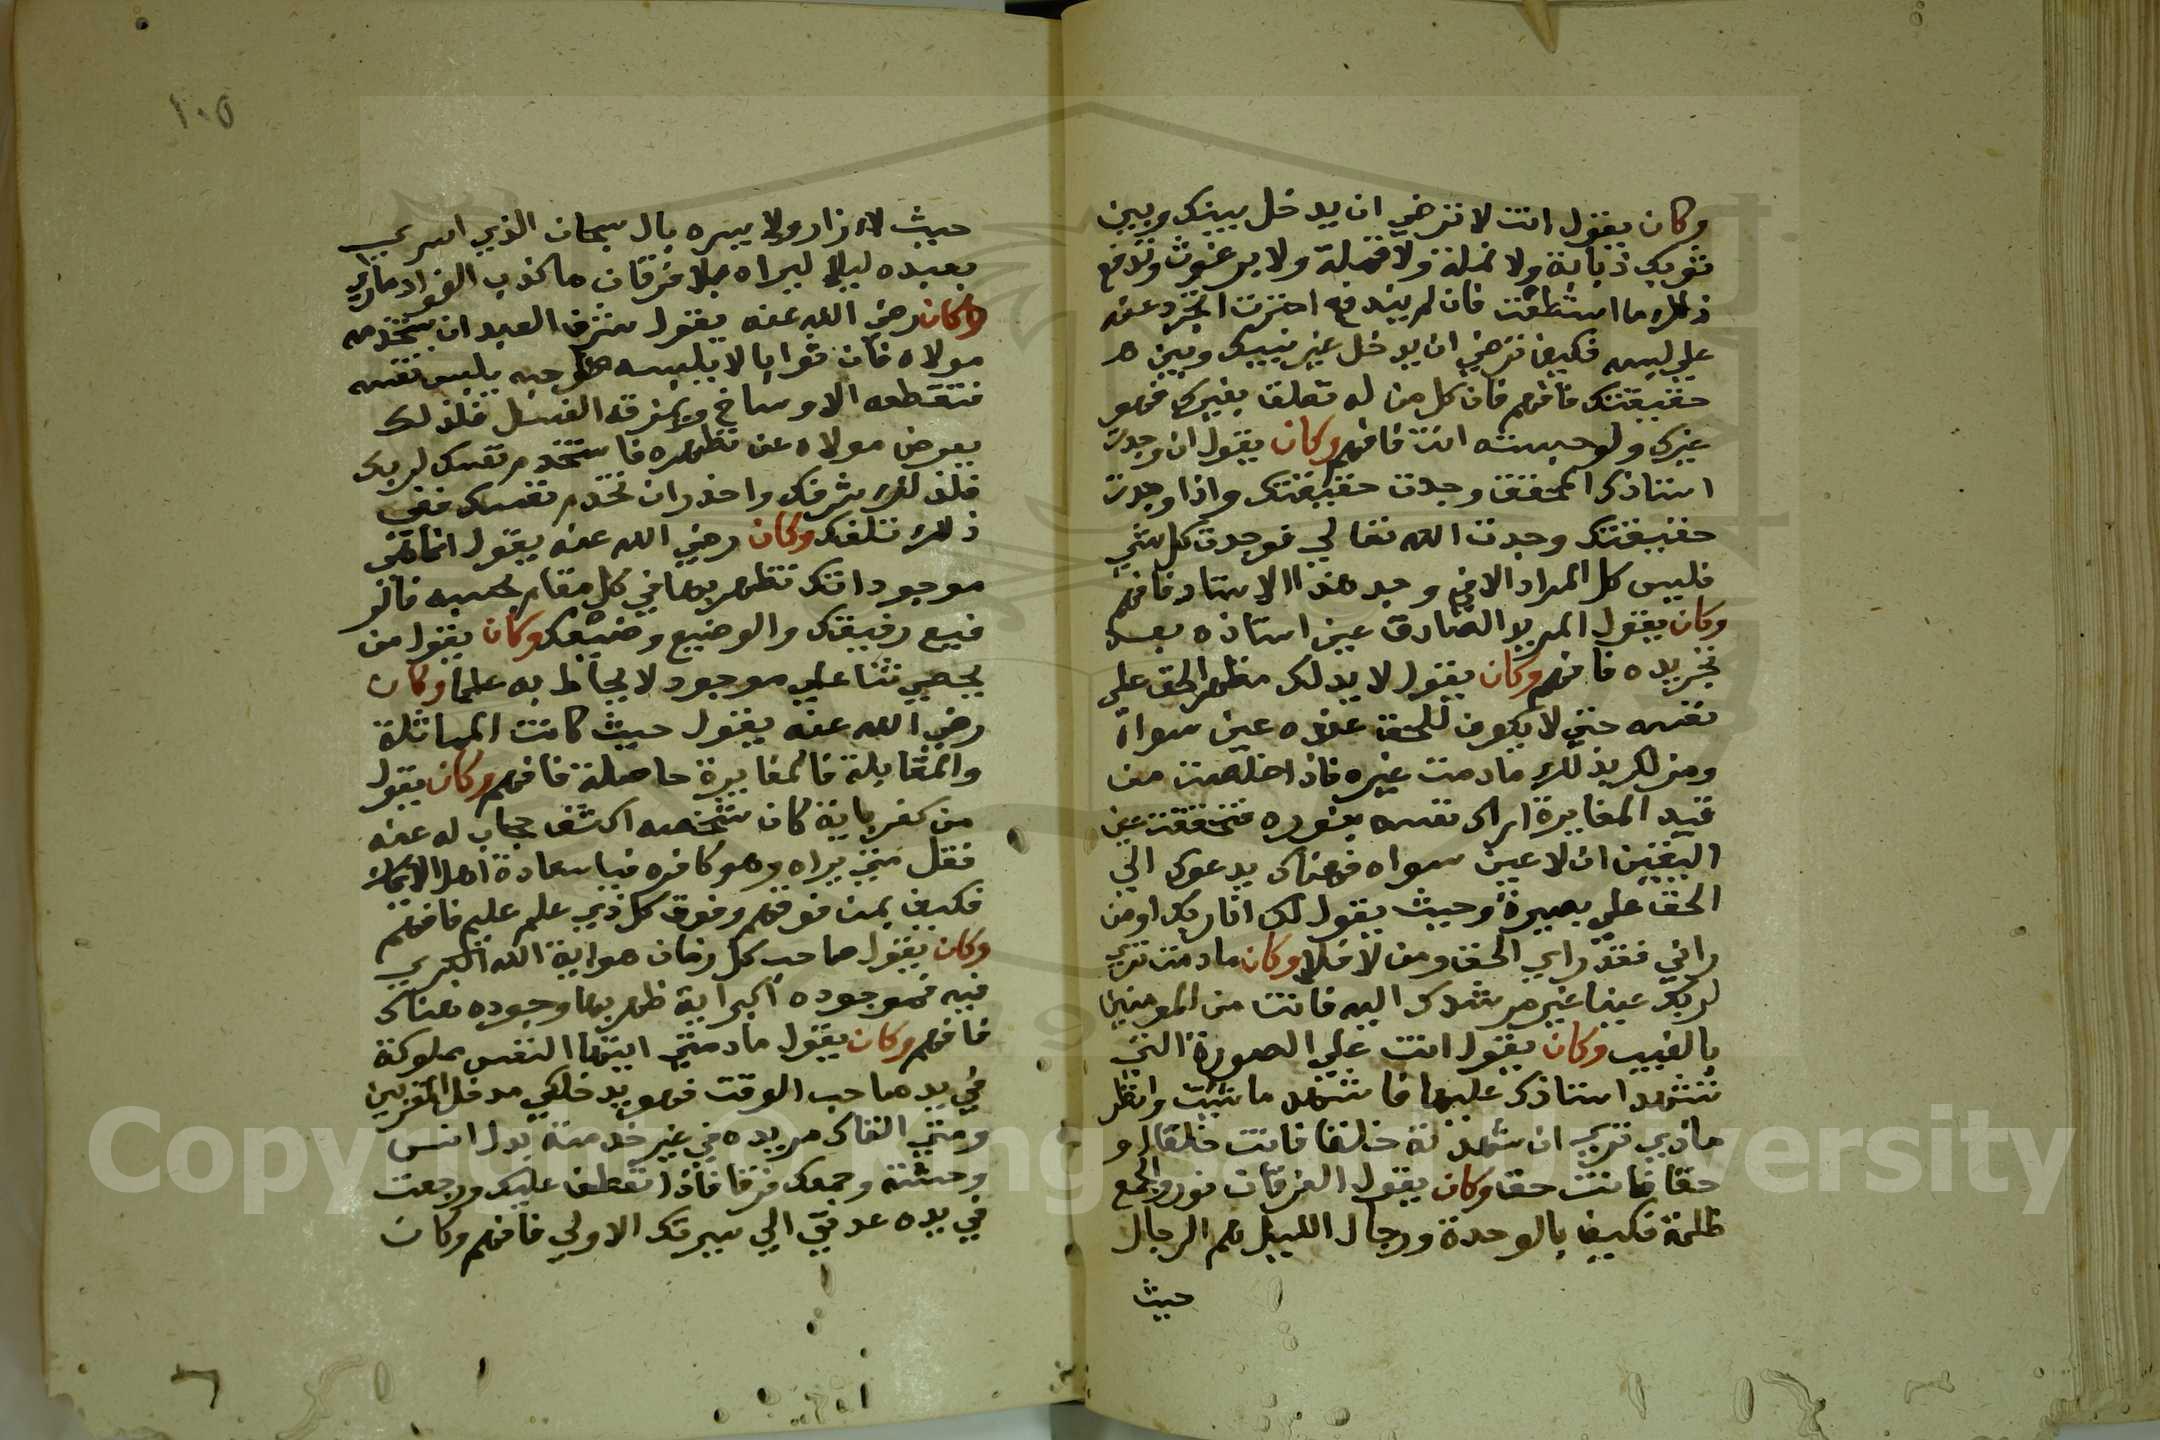 وكان يقول انت لا ترضي ان يدخل بينك وبين
ثوبك ذبابة ولا نملة ولا قملة ولا برغوث وتدفع
ذلك ما استطعت فان لم يندفع اخترت التجرد عنه
علي لبسه فكيف ترضي ان يدخل غير بينك وبين
حقيقتك فافهم فان كل من له تعلق بغيرك فهو
غيرك ولو حسبته انت فافهم وكان يقول ان وجدت
استاذك المحقق وجدت حقيقتك واذا وجدت
حقيقتك وجدت الله تعالي فوجدت كل شي
فليس كل المراد الا في وجد هذا الاستاد فافهم
وكان يقول المريد الصادق عين استاذه بعد
تجريده فافهم وكان يقول لا يدلك مظهر الحق علي
نفسه حتي لا يكون للحق عنده عين سواه
ومن لك بذلك مادمت غيره فاذا خلصت من
قيد المغايرة اراك نفسه بنوره فتحققت عين
اليقين ان لا عين سواه فهناك يدعوك الي
الحق علي بصيرة وحيث يقول لك انا ربك او من
راني فقد راي الحق ومن لا فلا وكان مادمت تري
لربك عينا غير مرشدك اليه فانت من المومنين
بالغيب وكان يقول انت علي الصورة التي
تشهد استاذك عليها فاشهد ما شئت وانظر
ماذي تري ان شهدته خلقا فانت خلقا و
حقا فانت حقا وكان يقول الفرقان نور والجمع
ظلمة فكيف بالوحدة ورجال الليل هم الرجال
حيث
١٠٥
حيث لا زار ولا يسره بال سبحان الذي اسري
بعبده ليلا ليراه بلا فرقان ما كذب الفواد ماراي
وكان رضي الله عنه يقول شرف العبد ان يستخدمه
مولاه فان ثوابا لا يلبسه صاحبه يلبس نفسه
فتقطعه الاوساخ ويمزقه الغسل فلذلك
يعرض مولاه عن تطهره فاستخدم نفسك لربك
فلذلك شرفك واحذر ان تخدم نفسك ففي
ذلك تلفك وكان رضي الله عنه يقول انما هي
موجوداتك تظهر بها في كل مقام بحسبه فالر
فيع رفيقك والوضيع وضيعك وكان يقول من
يحصي ثنا علي موجود لا يحاط به علما وكان
رضي الله عنه يقول حيث كانت المماثلة
والمقابلة فالمغايرة حاصلة فافهم وكان يقول
من كفر باية كان شخصه اكشف حجاب له عنه
فقل متي يراه وهو كافره فيا سعادة اهل الايمان
فكيف بمن فوقهم وفوق كل ذي علم عليم فافهم
وكان يقول صاحب كل زمان هو اية الله الكبري
فيه فموجوده اكبر اية ظهر بها وجوده هناك
فافهم وكان يقول مادمتي ايتها النفس مملوكة
في يد صاحب الوقت فهو يدخلكي مدخل المقربين
ومتي القاك من يده في غير خدمته بدل انس
وحشته وجمعك فرقا فاذا تعطف عليك ورجعت
في يده عدتي الي سيرتك الاولي فافهم وكان